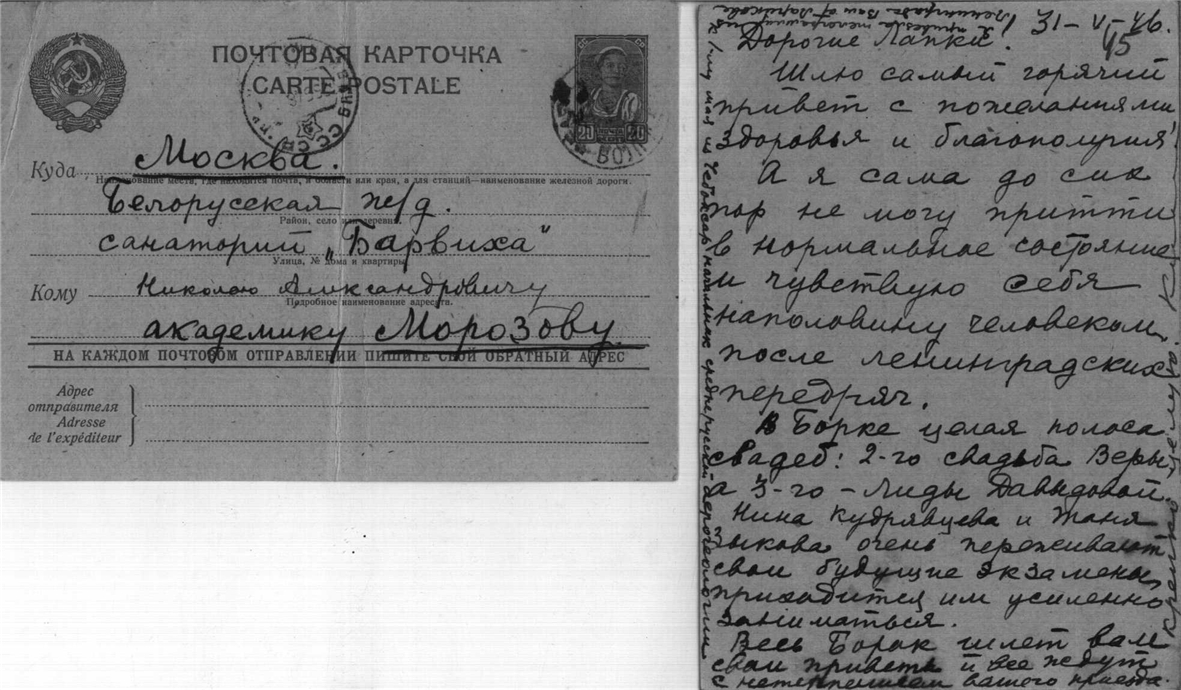 ПОЧТОВАЯ КАРТОЧКА
CARTE POSTALE
20 20
СССР
Куда Москва.
Наименование места, где находится почта, и области или края, а для станций—наименование железной дороги.
Белорусская ж/д.
Район, село или деревня.
санаторий „Барвиха“
Улица, № дома и квартиры.
Кому Николаю Александровичу
Подробное наименование адресата.
академику Морозову.
НА КАЖДОМ ПОЧТОВОМ ОТПРАВЛЕНИИ ПИШИТЕ СВОЙ ОБРАТНЫЙ АДРЕС
Адрес
отправителя
Adresse
de l'expéditeur
31-V-46.
45
Дорогие Лапки!
Шлю самый горячий
привет с пожеланиями
здоровья и благополучия!
А я сама до сих
пор не могу притти
в нормальное состояние
и чувствую себя
наполовину человеком
после ленинградских
передряг.
В Борке целая полоса
свадеб: 2-го свадьба Веры
а 3-го – Лиды Давыдовой.
Нина Кудрявцева и Таня
Зыкова очень переживают
свои будущие экзамены,
приходится им усиленно
заниматься.
Весь Борок шлет вам
свои приветы и все ждут
с нетерпением вашего приезда.
Крепко целую